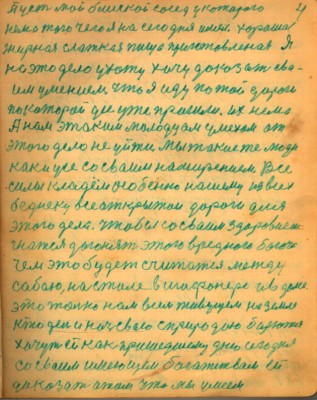 Пусть мой близкой сосед у которого 4
нема того чего я на сегодня имел. хорошая
жирная слаткая пища приготовленая. Я
на это дело ухожу хочу доказать сва-
им умением, что я иду по той дороги
по которой ще уже прошли. их нема
А нам этаким молодцам умелом от
этого дело не уйти. Мы такие же люди
как и усе со своим намирением. Все
силы кладём особенно нашему из всех
беднеку все открытои дороги для
этого дела. чтобы со своим здороваем
гнатся догонят этого вредного богоча
чем это будет считатся между
сабою, на столе в шифонере и в доме
это толко нам всем живущем на земле
кто ден и ноч свого с природою борится
хочут ей как пришедшему дню сегодня
со своим имеющем богатством ей
доказат а там что мы умеем